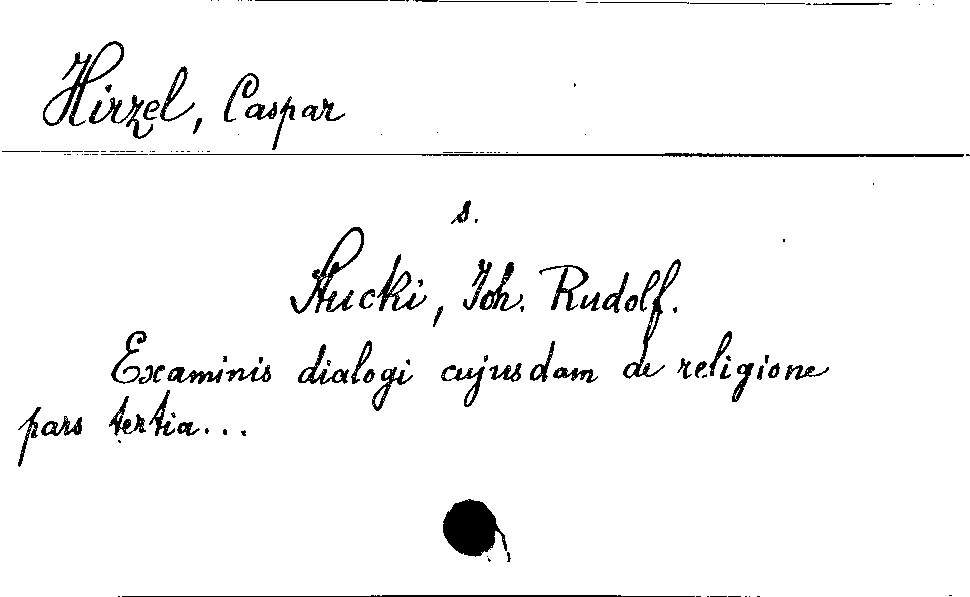 Hirzel, Caspar
s.
Stucki, Joh. Rudolf.
Examinis dialogi cujusdam de religione
pars tertia...